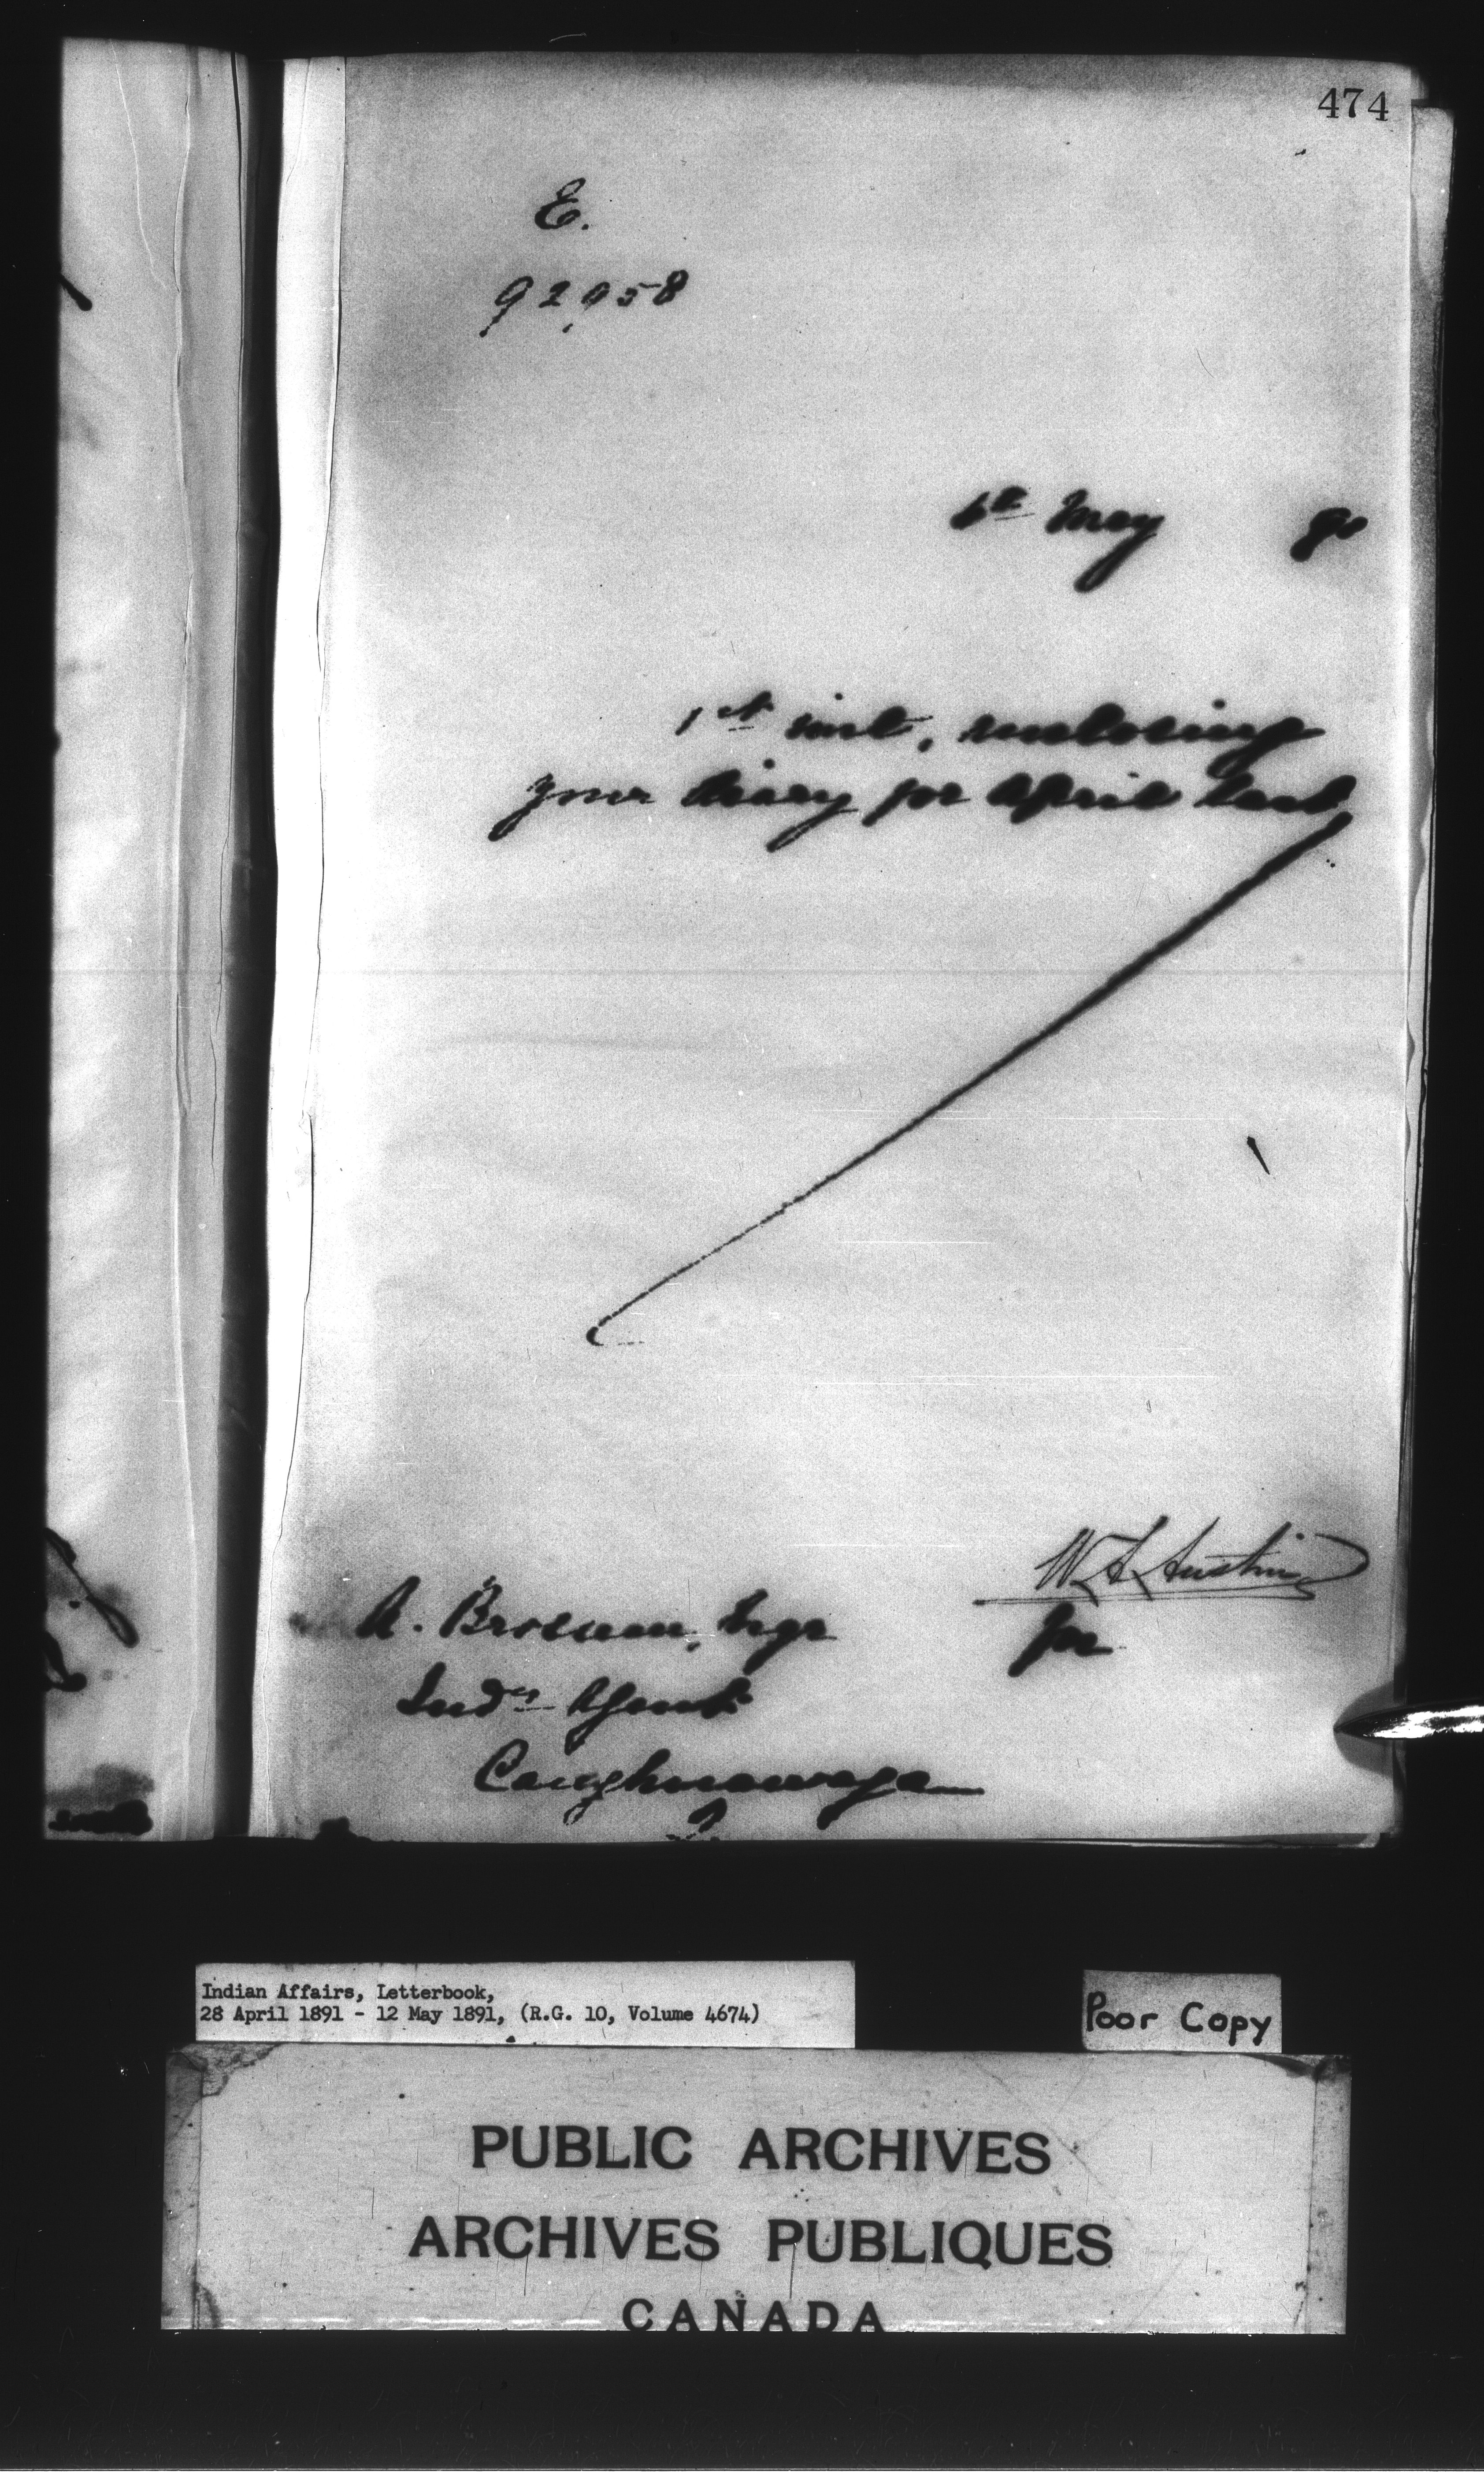 474
E.
92,958
6th May 91
1st inst, enclosing
your diary for April last
W A Austin
for
A. Brosseau, Esqr
Indn Agent
Caughnawaga
Indian Affairs, Letterbook,
28 April 1891 - 12 May 1891, (R.G. 10, Volume 4674)
Poor Copy
PUBLIC ARCHIVES
ARCHIVES PUBLIQUES
CANADA